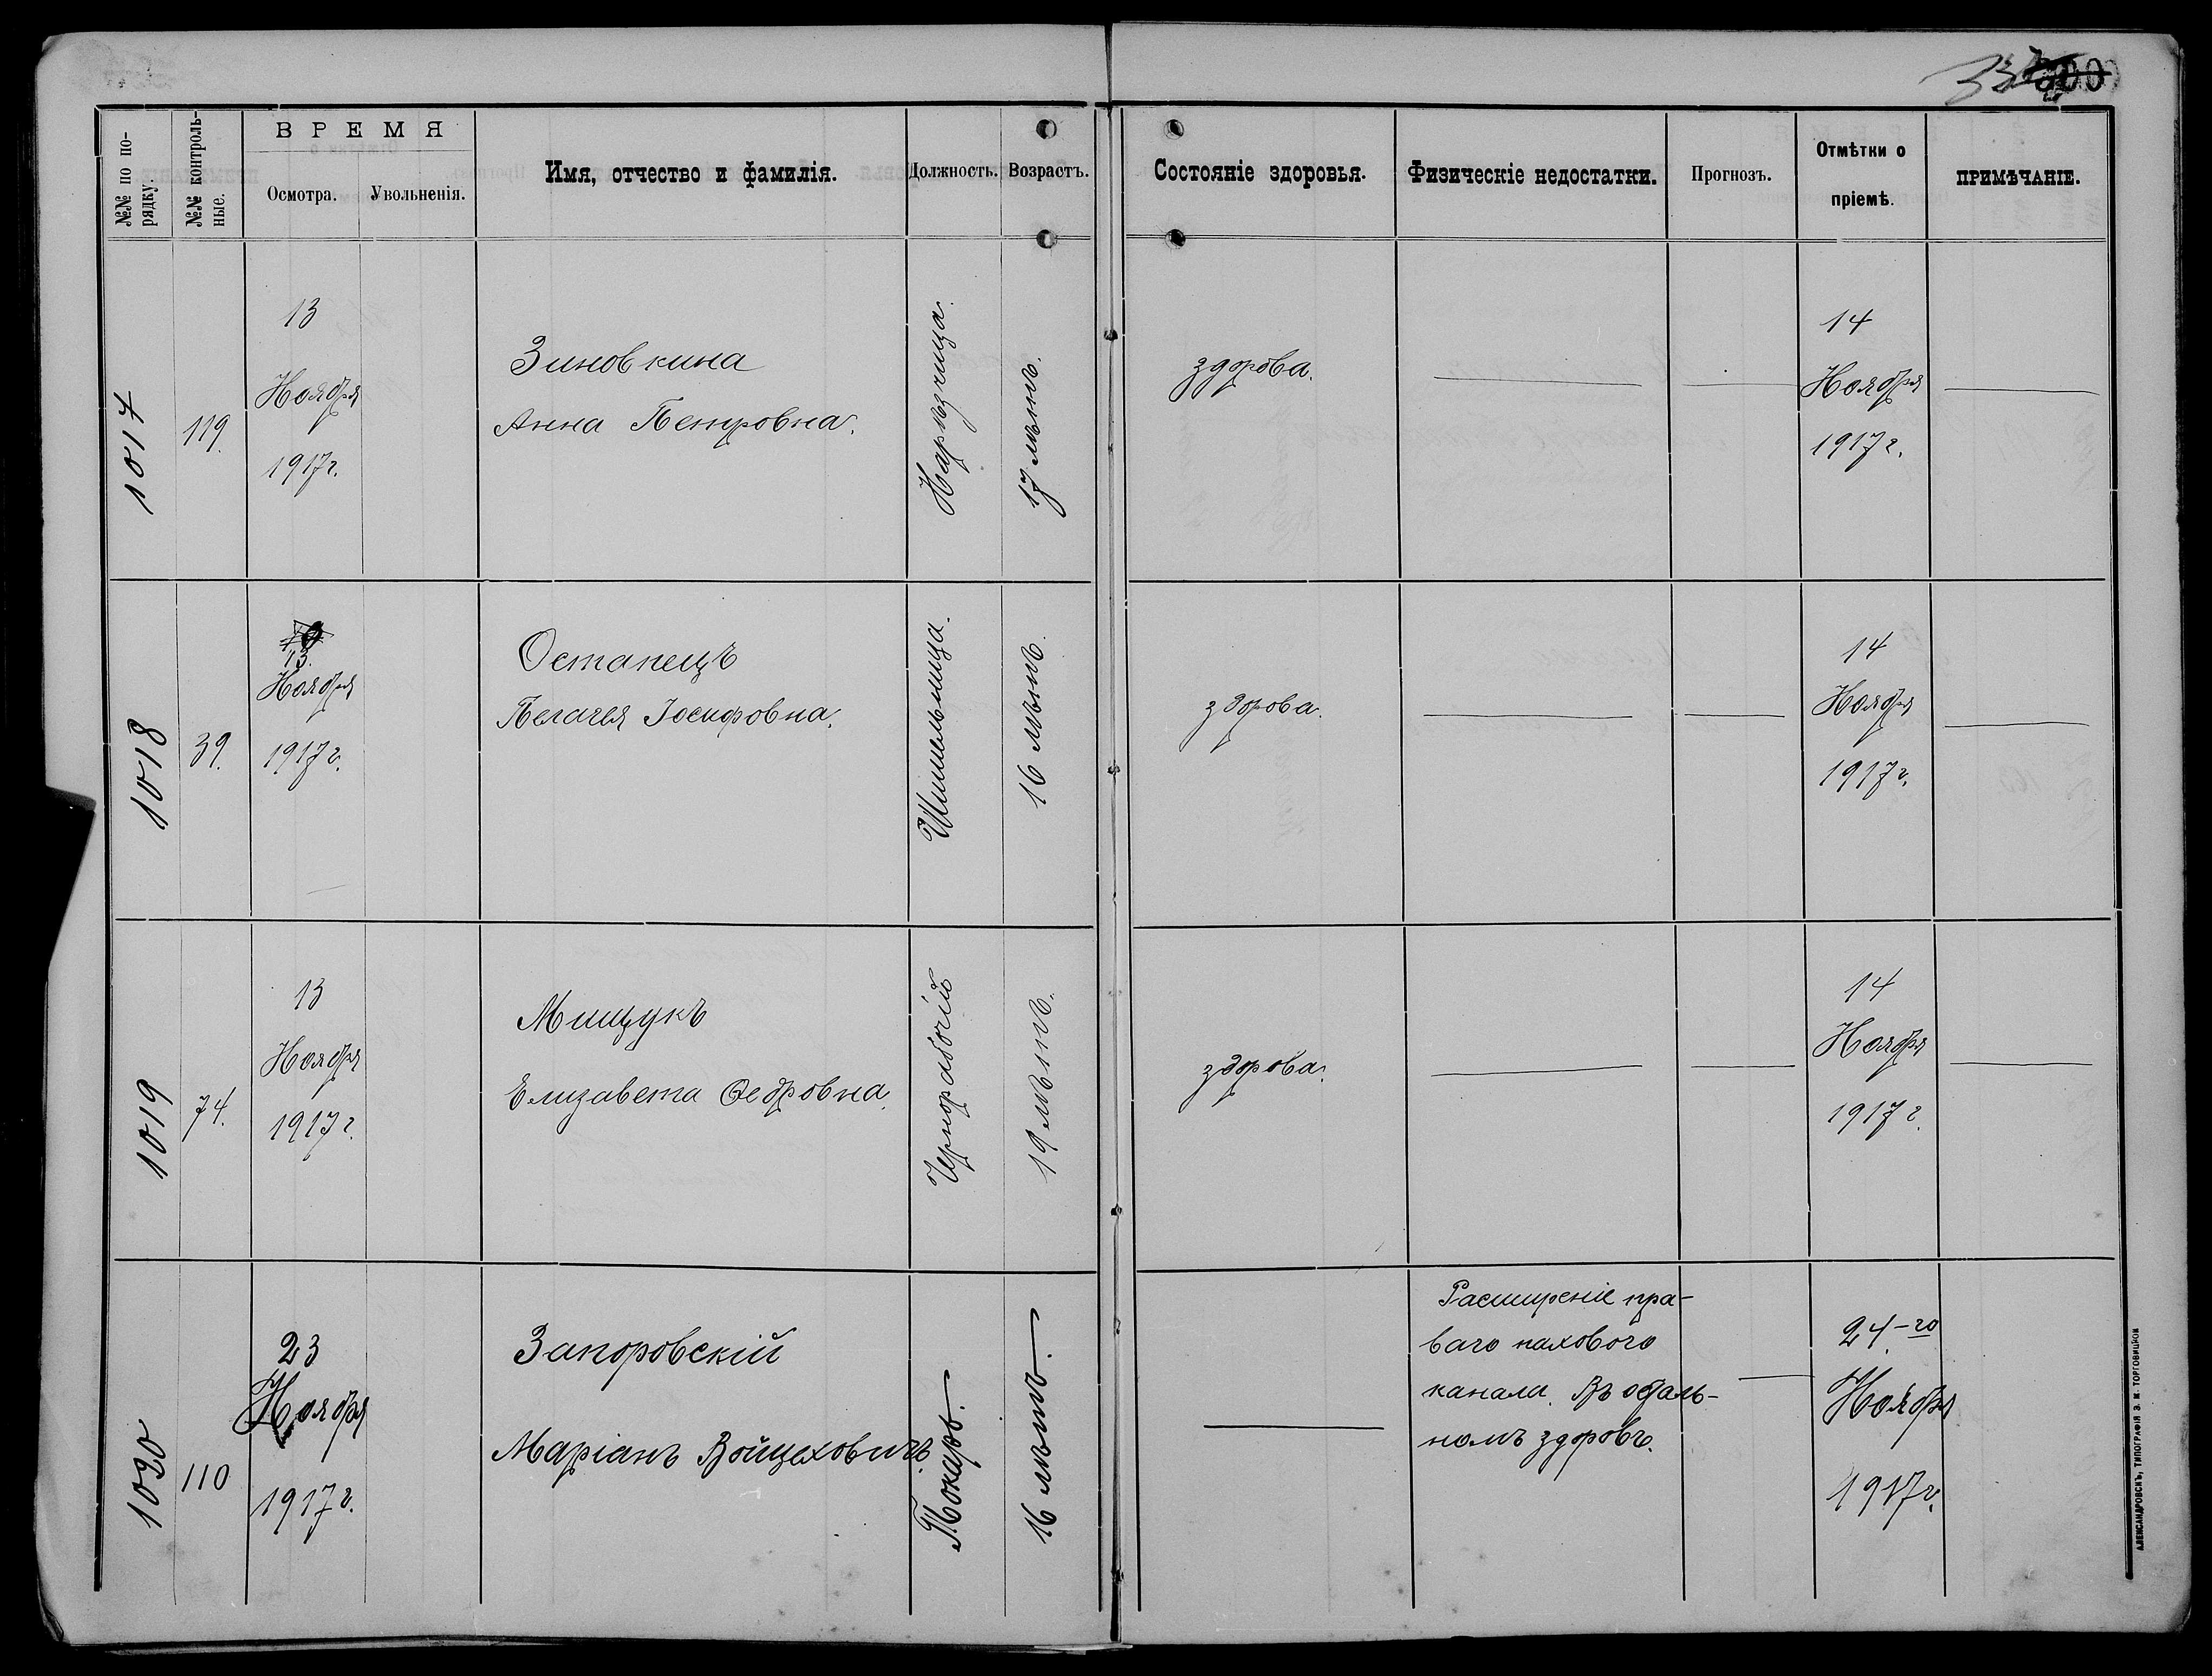 300
№№ по по-
рядку.
№№ контроль-
ные.
ВРЕМЯ
Осмотра.
Увольненія.
Имя, отчество и фамилія.
Должность.
Возрастъ.
Состояніе здоровья.
Физическіе недостатки.
Прогнозъ.
Отмѣтки о
пріемѣ.
ПРИМѢЧАНІЕ.
1017
119.
13
Ноября
1917 г.
Зиновкина
Анна Петровна.
Нарѣзчица.
17 лѣтъ.
здорова.
14
Ноября
1917 г.
1018
39.
13.
Ноября
1917 г.
Останецъ
Пелагея Іосифовна.
Шпильница.
16 лѣтъ.
здорова.
14
Ноября
1917 г.
1019
74.
13
Ноября
1917 г.
Мищукъ
Елизавета Ѳедровна.
Чернорабочій
19 лѣтъ.
здорова.
14
Ноября
1917 г.
1020
110
23
Ноября
1917 г.
Запоровскій
Маріанъ Войцеховичъ
Токарь.
16 лѣтъ.
Расширеніе пра-
ваго пахового
канала. Въ осталь-
номъ здоровъ.
24-го
Ноября
1917 г.
АЛЕКСАНДРОВСКЪ, ТИПОГРАФІЯ Э. М. ТОРГОВИЦКОЙ